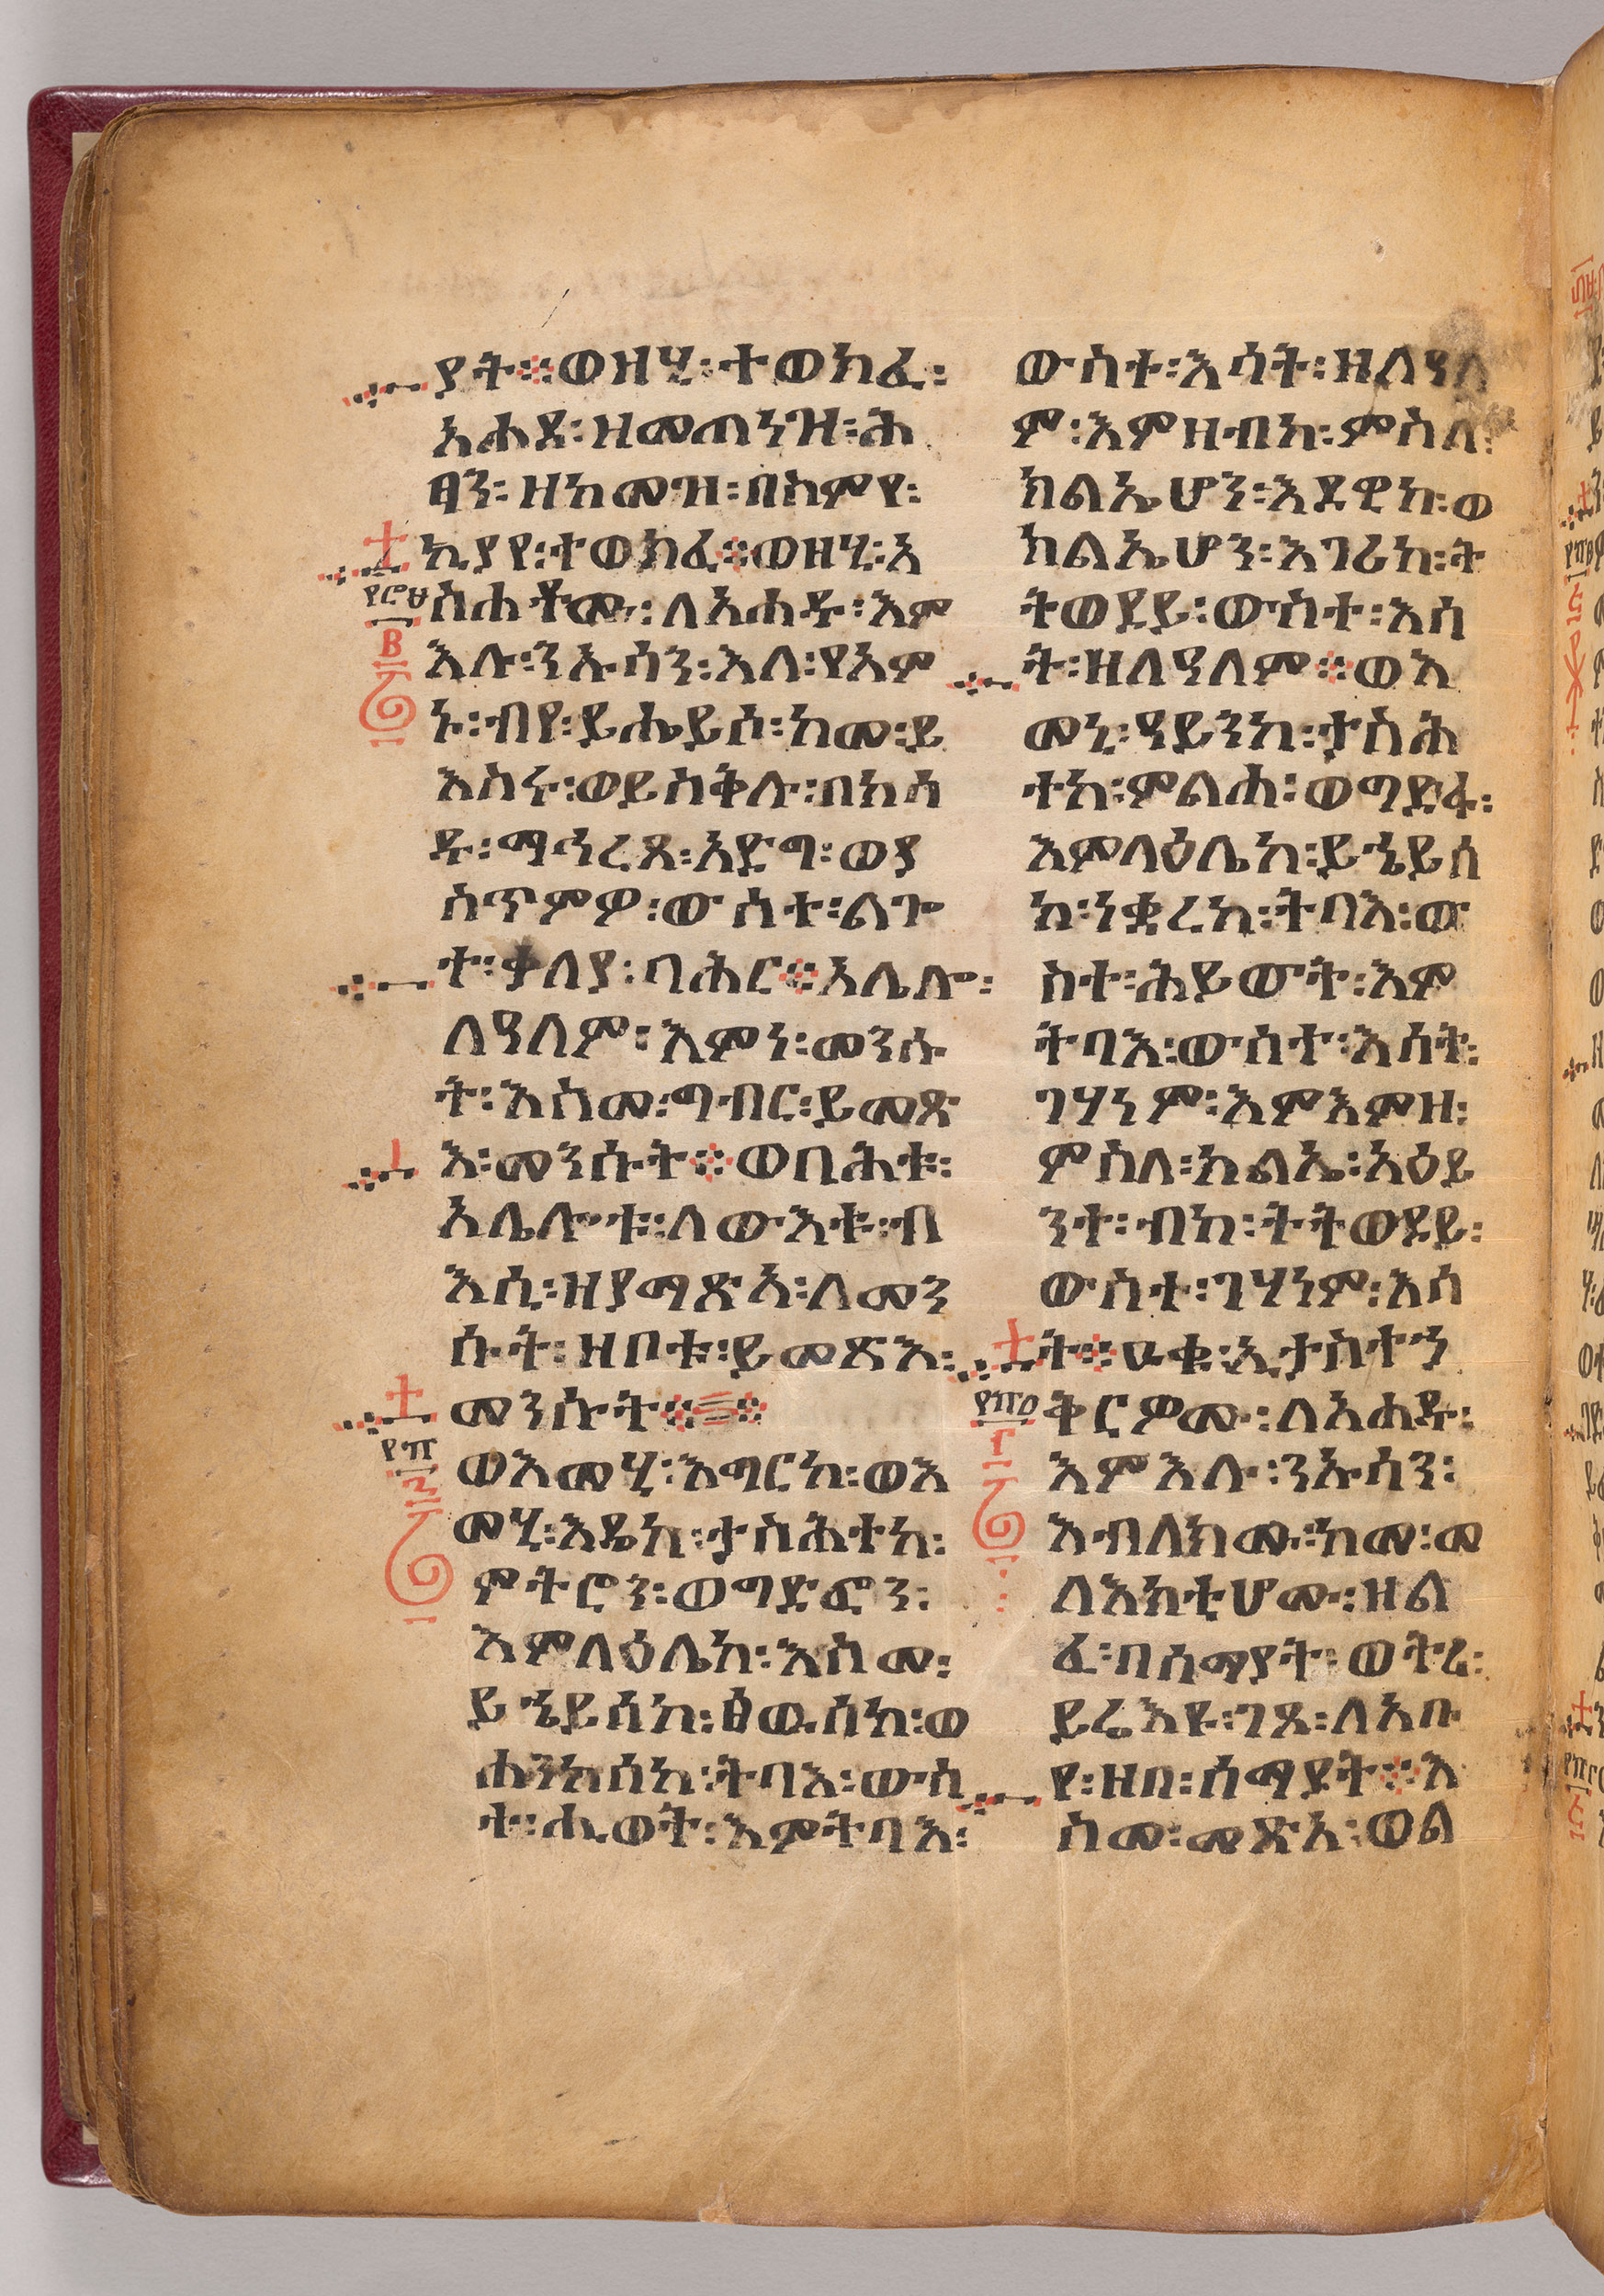 ያት፨ወዘሂ፡ተወክፈ፡
አሐደ፡ዘመጠነዝ፡ሕ
ፃን፡ዘከመዝ፡በስምየ፡
ኪያየ፡ተወክፈ፨ወዘሂ፡አ
ስሐቶሙ፡ለአሐዱ፡እም
እሉ፡ንኡሳን፡እለ፡የአም
ኑ፡ብየ፡ይሔይሶ፡ከመ፡ይ
እስሩ፡ወይስቅሉ፡በክሳ
ዱ፡ማኅረጸ፡አድግ፡ወያ
ስጥምዎ፡ውስተ፡ልጐ
ተ፡ቀላየ፡ባሕር፨አሌሎ፡
ለዓለም፡እምነ፡መንሱ
ት፡እስመ፡ግብር፡ይመጽ
እ፡መንሱት፨ወባሕቱ፡
አሌሎቱ፡ለውእቱ፡ብ
እሲ፡ዘያማጽኣ፡ለመን
ሱት፡ዘቦቱ፡ይመጽእ፡
መንሱት፨፨
ወእመሂ፡እግርከ፡ወእ
መሂ፡እዴከ፡ታስሕተከ፡
ምትሮን፡ወግድፎን፡
እምላዕሌከ፡እስመ፡
ይኄይሰከ፡ፅዉሰከ፡ወ
ሐንካሰከ፡ትባእ፡ውስ
ተ፡ሒወት፡እምትባእ፡
የሮፀ
የፐ
ውስተ፡እሳት፡ዘለዓለ
ም፡እምዘብከ፡ምስለ፡
ክልኤሆን፡እደዊከ፡ወ
ክልኤሆን፡እገሪከ፡ት
ትወደይ፡ውስተ፡እሳ
ት፡ዘለዓለም፨ወእ
መኒ፡ዓይንከ፡ታስሕ
ተከ፡ምልሐ፡ወግድፋ፡
እምላዕሌከ፡ይኄይሰ
ከ፡ነቋረከ፡ትባእ፡ው
ስተ፡ሕይወት፡እም
ትባእ፡ውስተ፡እሳት፡
ገሃነም፡እምእምዘ፡
ምስለ፡ክልኤ፡አዕይ
ንተ፡ብከ፡ትትወደይ፡
ውስተ፡ገሃነም፡እሳ
ት፨ዑቁ፡ኢታስተኅ
ቅርዎሙ፡ለአሐዱ፡
እምእሉ፡ንኡሳን፡
እብለክሙ፡ከመ፡መ
ላእክቲሆሙ፡ዘል
ፈ፡በሰማያት፡ወትረ፡
ይሬእዩ፡ገጸ፡ለአቡ
የ፡ዘበ፡ሰማያት፨እ
ስመ፡መጽአ፡ወል
የፐ፬